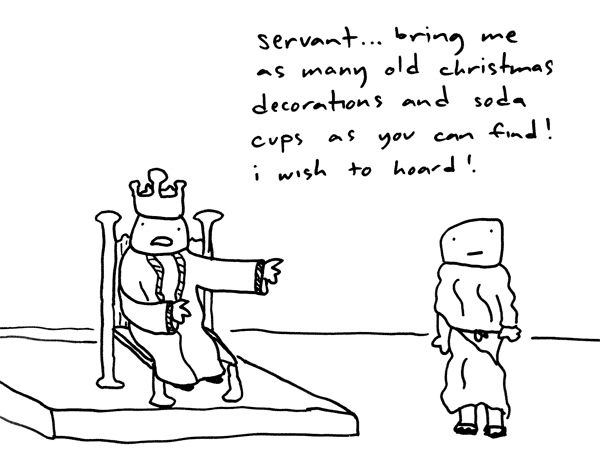 servant... bring me
as many old christmas
decorations and soda
cups as you can find!
i wish to hoard!